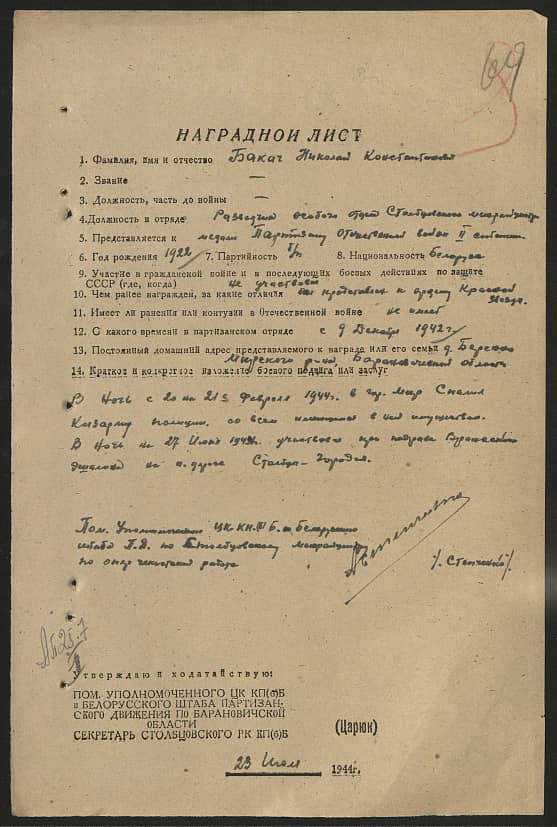 69
НАГРАДНОЙ ЛИСТ
1. Фамилия, имя и отчество Бакач Николай Константинович
2. Звание —
3. Должность, часть до войны —
4. Должность в отряде Разведчик особого отдела Столбцовского межрайцентра
5. Представляется к медали Партизану Отечественной войны II степени
6. Год рождения 1922 г. 7. Партийность б/п 8. Национальность Белорус
9. Участие в гражданской войне и в последующих боевых действиях по защите
СССР (где, когда) не участвовал
10. Чем ранее награжден, за какие отличия представлен к ордену Красной
Звезда
11. Имеет ли ранения или контузии в Отечественной войне не имеет
12. С какого времени в партизанском отряде с 9 Декабря 1942 г.
13. Постоянный домашний адрес представляемого к награде или его семьи д.
Мирского р-на Барановичской области
14. Краткое и конкретное изложение боевого подвига или заслуг
В ночь с 20 на 21 Февраля 1944 г. в гор. Мир Спалил
Казарму полиции, со всем имеющимся в ней имуществом.
В ночь на 27 1944 г. участвовал при подрыве
эшелона на ж. дороге Столбцы - Городея.
Пом. Уполномоченного ЦК КП/б/Б. и Белорусского
штаба П.Д. по Столбцовскому межрайцентру
по опер чекистской работе
/. Степченко/.
Утверждаю и ходатайствую:
ПОМ. УПОЛНОМОЧЕННОГО ЦК КП(б)Б
и БЕЛОРУССКОГО ШТАБА ПАРТИЗАН-
СКОГО ДВИЖЕНИЯ ПО БАРАНОВИЧСКОЙ
ОБЛАСТИ
СЕКРЕТАРЬ СТОЛБЦОВСКОГО РК КП(б)Б
(Царюк)
23 Июля 1944г.